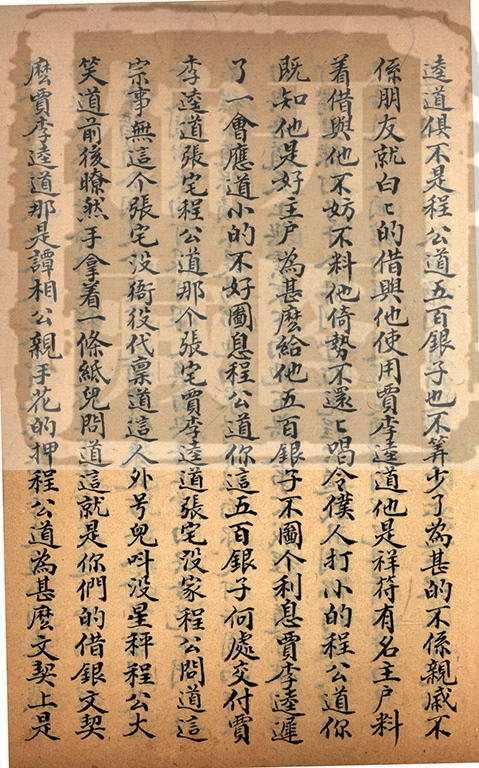 逵道俱不是程公道五百銀子也不筭少了為甚的不係親戚不
係朋友就白〻的借與他使用賈李逵道他是祥符有名主戶料
着借與他不妨不料他倚勢不還〻唱令僕人打小的程公道你
既知他是好主戶為甚麽給他五百銀子不圖个利息賈李逵遲
了一會應道小的不好圖息程公道你這五百銀子何處交付賈
李逵道張宅程公道那个張宅賈李逵道張宅没家程公問道這
宗事無這介張宅没衙役代禀道這人外号兒呌没星秤程公大
笑道前孩瞭然手拿着一條紙兒問道這就是你們的借銀文契
麽賈李逵道那是譚相公親手花的押程公道為甚麽文契上是